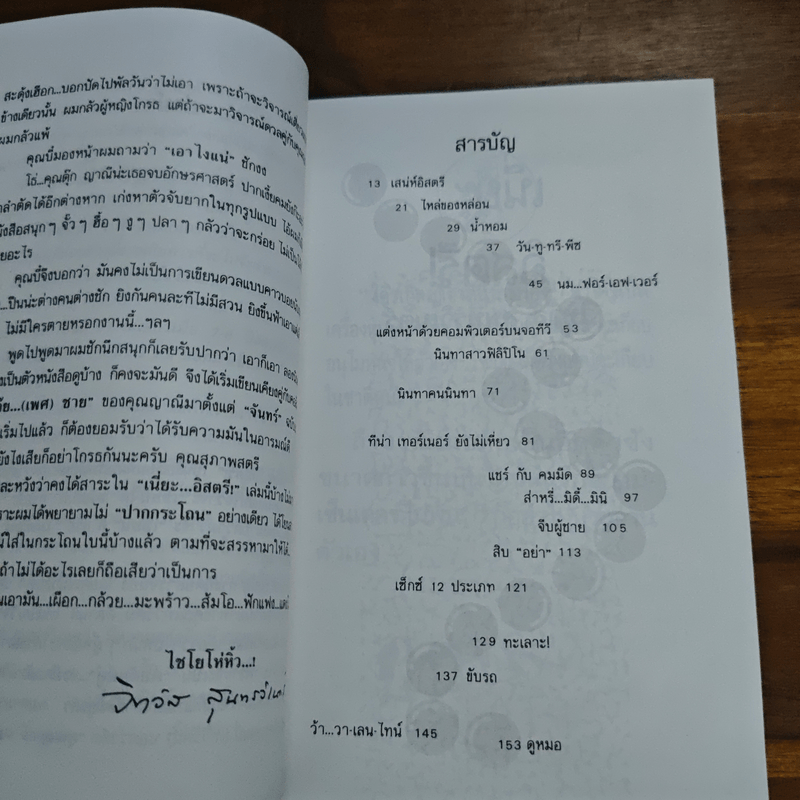 สะดุ้งเฮือก...บอกปัดไปพัลวันว่าไม่เอา เพราะถ้าจะวิจารณ์
ข้างเดียวนั้น ผมกลัวผู้หญิงโกรธ แต่ถ้าจะมาวิจารณ์ดวลคู่กับ
ผมกลัวแพ้
คุณบี๋มองหน้าผมถามว่า “เอาไงแน่” ชักงง
โธ่...คุณตุ๊ก ญาณีน่ะเธอจบอักษรศาสตร์ ปากเงี้ยคม
ลำตัดได้อีกต่างหาก เก่งหาตัวจับยากในทุกรูปแบบ
หนังสือสนุก ๆ จั๊ว ๆ ฮื้อ ๆ งู ๆ ปลา ๆ กลัวว่าจะกร่อย ไม่เป็น
อะไร
คุณบี๋จึงบอกว่า มันคงไม่เป็นการเขียนดวลแบบคาวบอย
...ปืนน่ะต่างคนต่างชัก ยิงกันคนละทีไม่มีสวน ยิงขึ้นฟ้าเอา
ไม่มีใครตายหรอกงานนี้...ๆลๆ
พูดไปพูดมาผมชักนึกสนุกก็เลยรับปากว่า เอาก็เอา
เป็นตัวหนังสือดูบ้าง ก็คงจะมันดี จึงได้เริ่มเขียนเคียงคู่กับ
...(เพศ) ชาย” ของคุณญาณีมาตั้งแต่ “จันทร์”
เริ่มไปแล้ว ก็ต้องยอมรับว่าได้รับความมันในอารมณ์ดี
ยังไงเสียก็อย่าโกรธกันนะครับ คุณสุภาพสตรี
และหวังว่าคงได้สาระใน “เนี่ยะ...อิสตรี!” เล่มนี้บ้าง
เพราะผมได้พยายามไม่ “ปากกระโถน” อย่างเดียว ได้
ใส่ในกระโถนใบนี้บ้างแล้ว ตามที่จะสรรหามาให้ได้
ถ้าไม่ได้อะไรเลยก็ถือเสียว่าเป็นการ
เอามัน...เผือก...กล้วย...มะพร้าว...ส้มโอ...ฟักแฟง...
ไชโยโห่หิ้ว...!
สารบัญ
13 เสน่ห์อิสตรี
21 ไหล่ของหล่อน
29 น้ำหอม
37 วัน-ทู-ทรี-พีช
45 นม...ฟอร์-เอฟ-เวอร์
แต่งหน้าด้วยคอมพิวเตอร์บนจอทีวี 53
นินทาสาวฟิลิปิโน 61
นินทาคนนินทา 71
ทีน่า เทอร์เนอร์ ยังไม่เหี่ยว 81
แชร์ กับ คมมีด 89
ส่าหรี่...มิดี้...มินิ 97
จีบผู้ชาย 105
สิบ “อย่า” 113
เซ็กซ์ 12 ประเภท 121
129 ทะเลาะ!
137 ขับรถ
ว้า...วา-เลน-ไทน์ 145
153 ดูหมอ